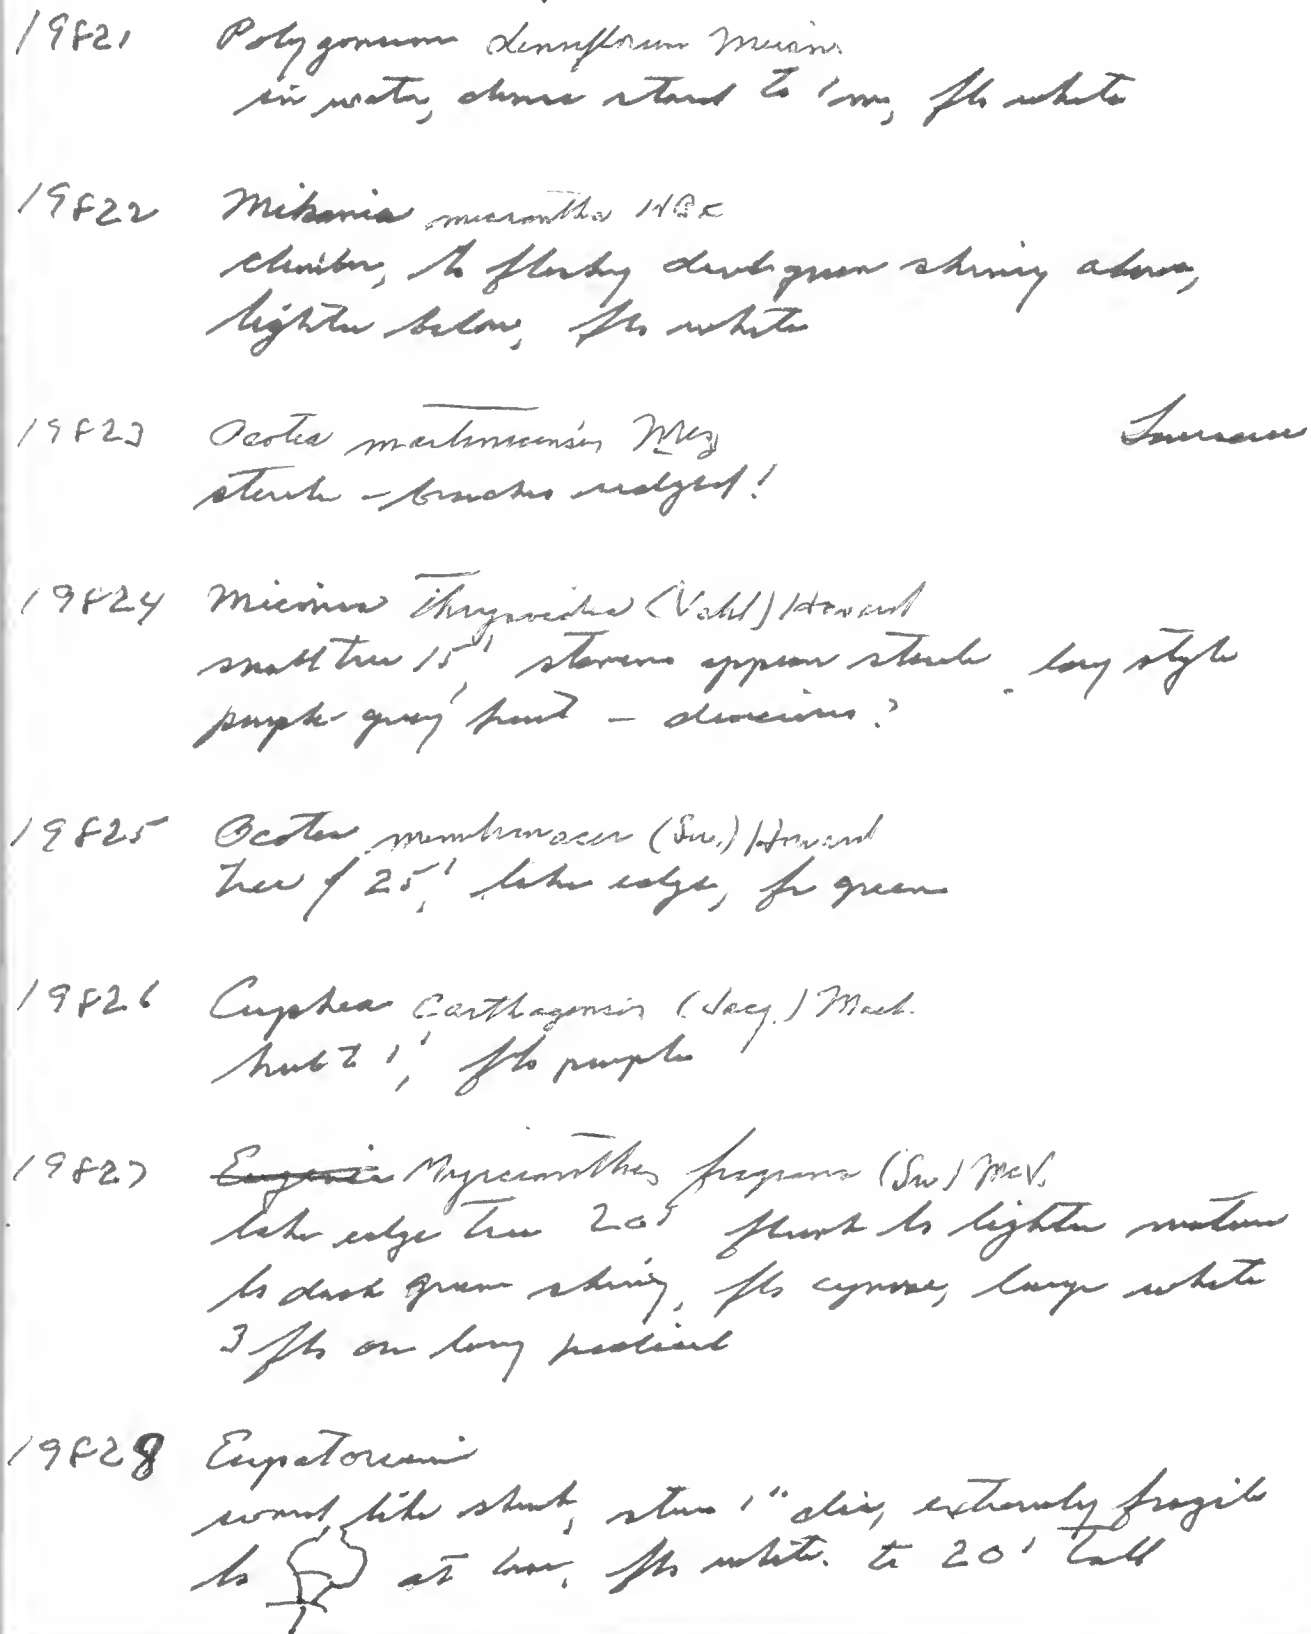 19821 Polygonum densiflorum Meissn.
in water, dense stand to 1 m, fls white
19822 Mikania micrantha HBK
climber, ls fleshy dark green shiny above,
lighter below, fls white
19823 Ocotea martinicensis Mez
sterile - branches ridged!
19824 Miconia thrysoidea (Vahl) Howard
small tree 15', stamens appear sterile long style
purple-gray fruit - dioecious?
19825 Ocotea membranacea (Sw.) Howard
tree of 25', lake edge, fr green
19826 Cuphea carthagensis (Jacq.) Macb.
herb to 1', fls purple
19827 Eugenia Myrcianthes fragrans (Sw) McV.
lake edge tree 20' flush ls lighter mature
ls dark green shiny, fls cymose, large white
3 fls on long pedicel
19828 Eupatorium
like shrub, stem 1" dia, extremely fragile
ls at base, fls white. to 20' tall